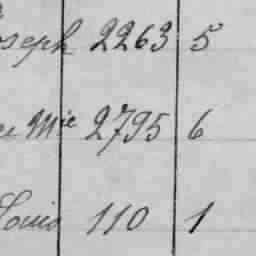 oseph 2263 5
Mie 2795 6
Louis 110 1